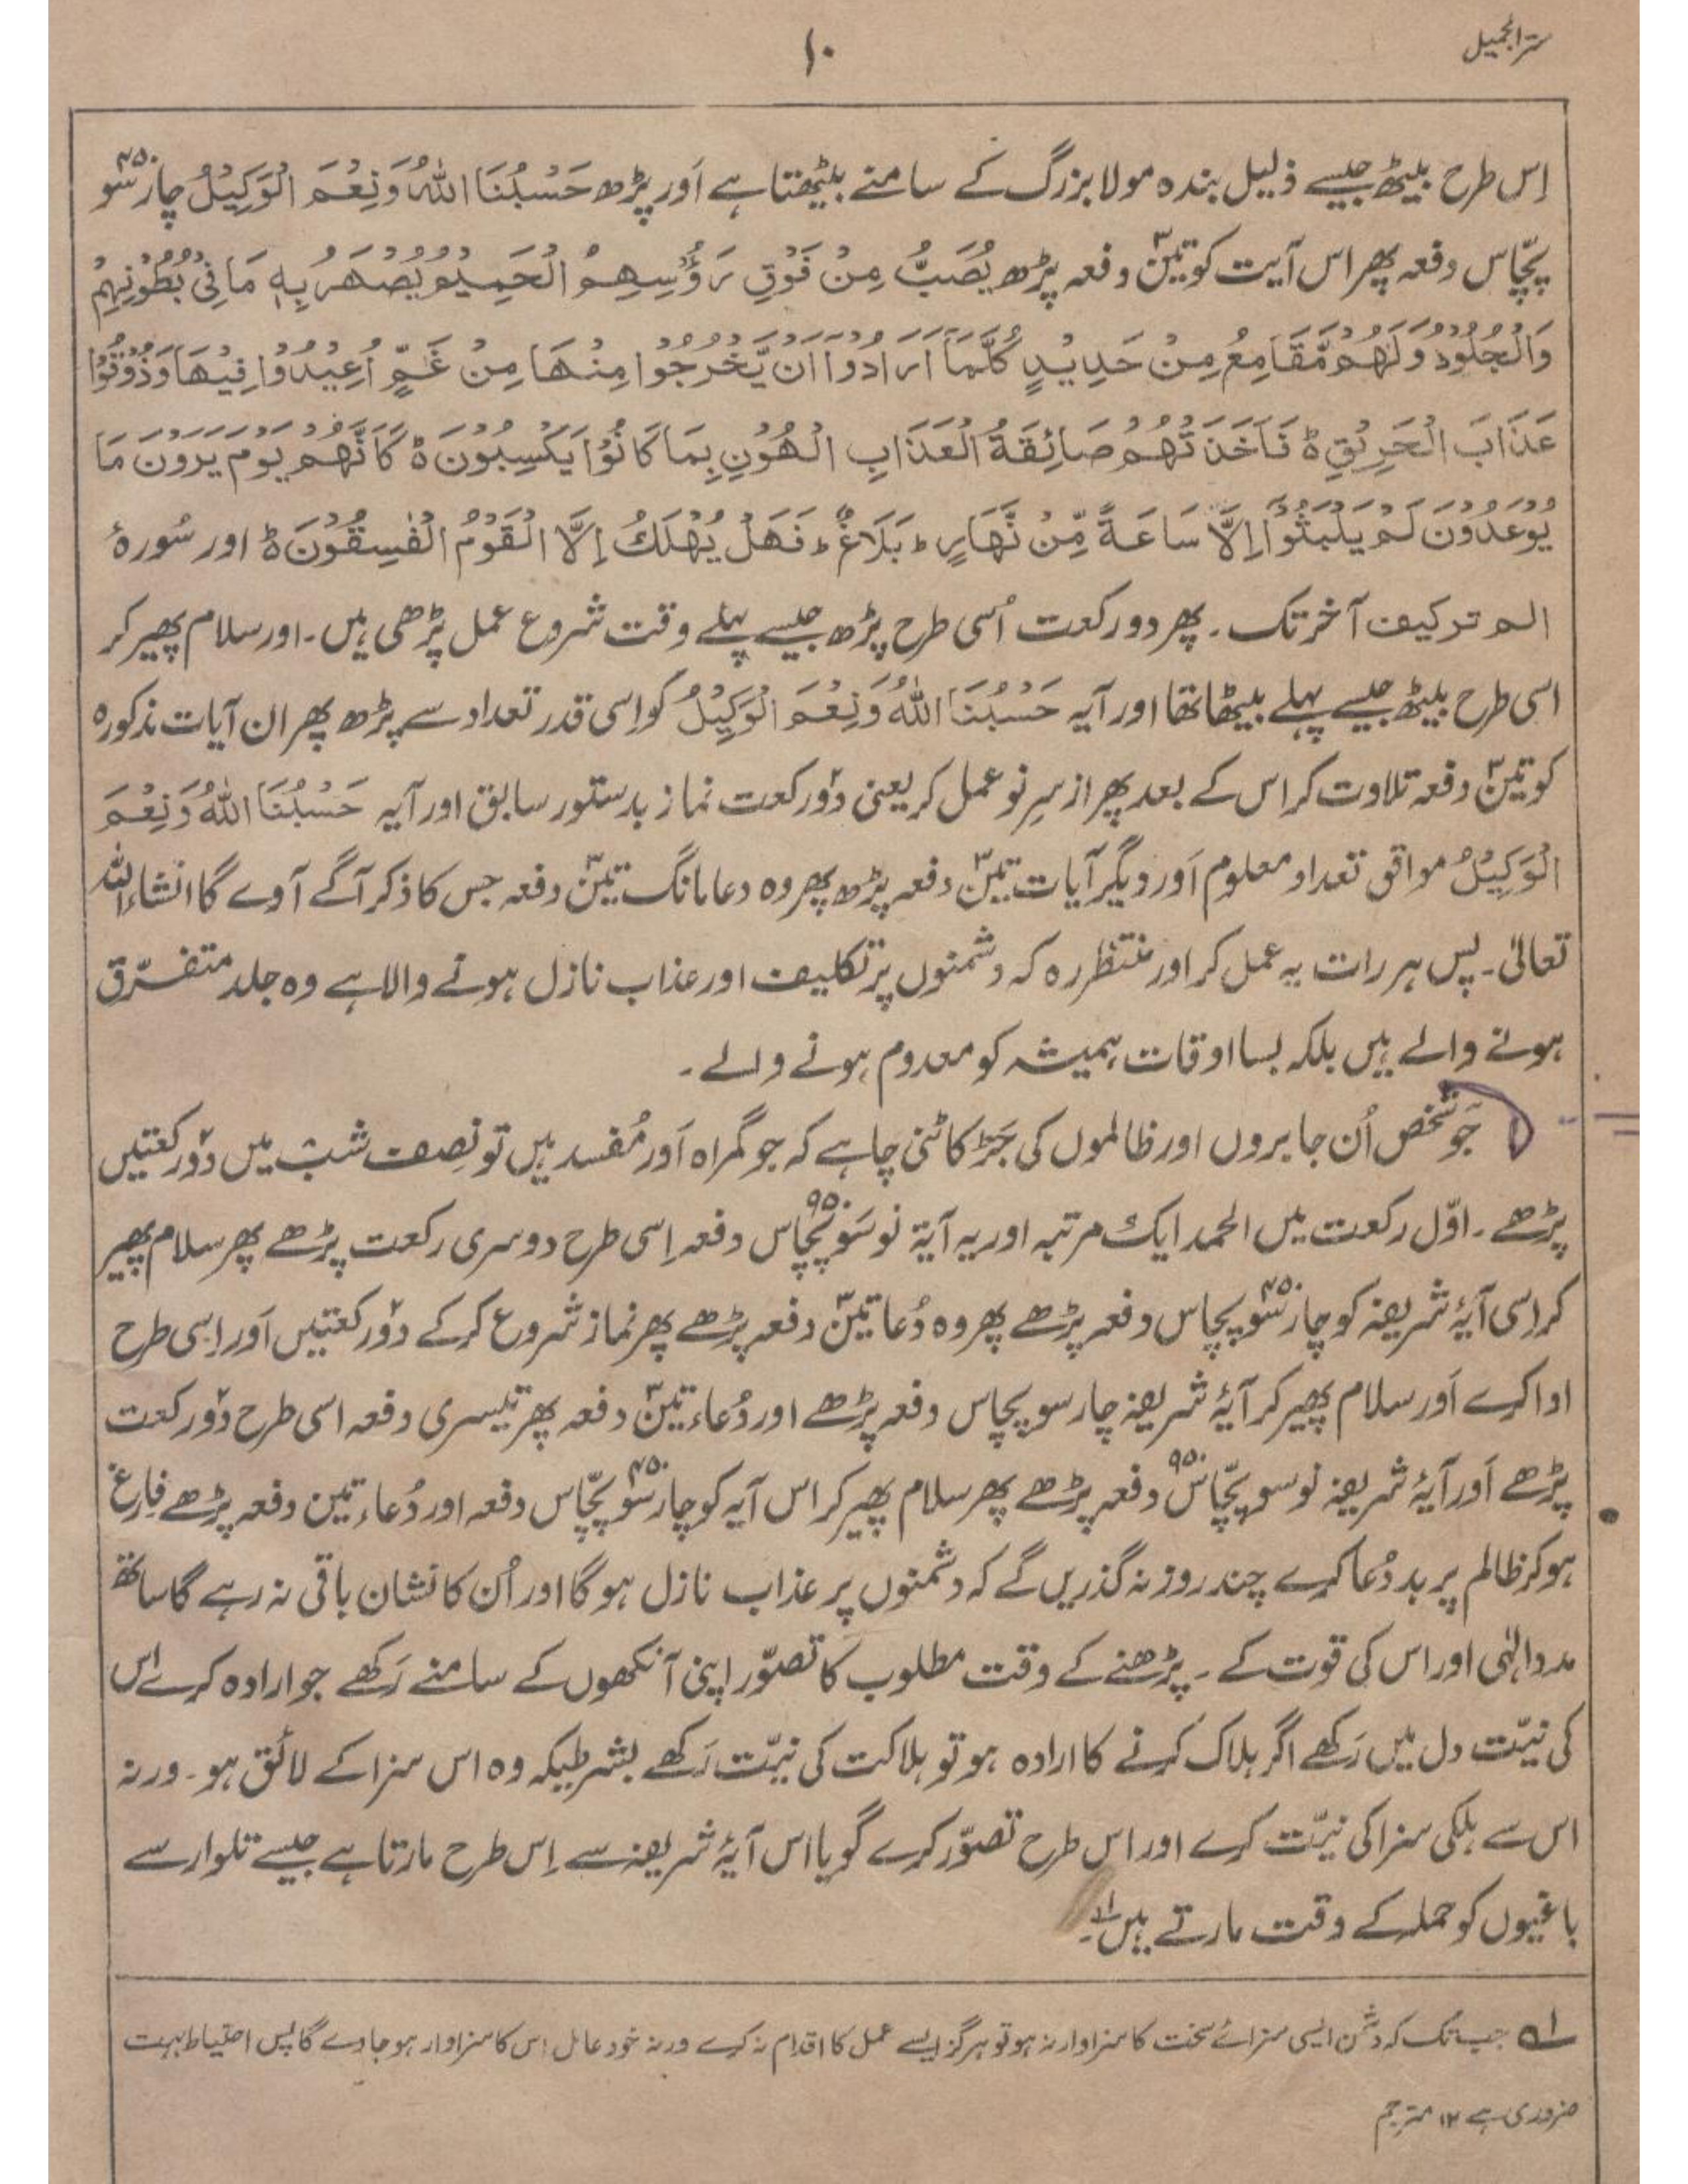 سرّ الجمیل
۱۰
اِس طرح بیٹھ جیسے ذلیل بندہ مولا بزرگ کے سامنے بیٹھتا ہے اَور پڑھ حَسْبُنَا اللّٰہُ وَنِعْمَ الْوَکِیْلُ چار سَو ۴۵۰
پچّاس دفعہ پھر اس آیت کو تین۳ دفعہ پڑھ یُصَبُّ مِنْ فَوْقِ رَؤُسِھِمُ الْحَمِیْمُ یُصْھَرُ بِہٖ مَا فِیْ بُطُوْنِہِمْ
وَالْجُلُوْدُ وَلَھُمْ مَّقَامِعُ مِنْ حَدِیْدٍ کُلَّمَآ اَرَادُوْآ اَنْ یَّخْرُجُوْا مِنْھَا مِنْ غَمٍّ اُعِیْدُوْا فِیْھَا وَذُوْقُوْا
عَذَابَ الْحَرِیْقِ ہ فَاَخَذَتْھُمْ صَائِقَۃُ الْعَذَابِ الْھُوْنِ بِمَا کَانُوْا یَکْسِبُوْنَ ہ کَاَنَّھُمْ یَوْمَ یَرَوْنَ مَا
یُوْعَدُوْنَ لَمْ یَلْبَثُوْٓا اِلَّا سَاعَۃً مِّنْ نَّھَارٍ ؕ بَلَاغٌ ؕ فَھَلْ یُھْلَکُ اِلَّا الْقَوْمُ الْفٰسِقُوْنَ ہ اور سُورۂ
الم ترکیف آخر تک ۔ پھر دو رکعت اُسی طرح پڑھ جیسے پہلے وقت شروع عمل پڑھی ہیں ۔ اور سلام پھیر کر
اسی طرح بیٹھ جیسے پہلے بیٹھا تھا اور آیہ حَسْبُنَا اللّٰہُ وَنِعْمَ الْوَکِیْلُ کو اِسی قدر تعداد سے پڑھ پھر ان آیات مذکورہ
کو تین۳ دفعہ تلاوت کر اس کے بعد پھر از سرِ نو عمل کر یعنی دو۲ رکعت نماز بدستور سابق اور آیہ حَسْبُنَا اللّٰہُ وَنِعْمَ
الْوَکِیْلُ موافق تعداد معلوم اَور دیگر آیات تین۳ دفعہ پڑھ پھر وہ دعا مانگ تین۳ دفعہ جس کا ذکر آگے آوے گا انشاءاللہ
تعالیٰ ۔ پس ہر رات یہ عمل کر اور منتظر رہ کہ دشمنوں پر تکلیف اور عذاب نازل ہونے والا ہے وہ جلد متفرّق
ہونے والے ہیں بلکہ بسا اوقات ہمیشہ کو معدوم ہونے والے ۔
جو شخص اُن جابروں اور ظالموں کی جَڑ کاٹنی چاہے کہ جو گمراہ اَور مُفسد ہیں تو نِصف شب میں دو۲ رکعتیں
پڑھے ۔ اوّل رکعت میں الحمد ایک مرتبہ اور یہ آیۃ نو سَو پچّاس ۹۵۰ دفعہ اِسی طرح دوسری رکعت پڑھے پھر سلام پھیر
کر اِسی آیۂ شریفہ کو چار سَو پچاس ۴۵۰ دفعہ پڑھے پھر وہ دُعا تین۳ دفعہ پڑھے پھر نماز شروع کرکے دو۲ رکعتیں اَور اِسی طرح
ادا کرے اَور سلام پھیر کر آیۂ شریفہ چار سو پچاس دفعہ پڑھے اور دُعاء تین۳ دفعہ پھر تیسری دفعہ اسی طرح دو۲ رکعت
پڑھے اَور آیۂ شریفہ نو سو پچّاس ۹۵۰ دفعہ پڑھے پھر سلام پھیر کر اس آیہ کو چار سَو پچّاس ۴۵۰ دفعہ اور دُعاء تین دفعہ پڑھے فارغ
ہو کر ظالم پر بد دُعا کرے چند روز نہ گذریں گے کہ دشمنوں پر عذاب نازل ہو گا اور اُن کا نشان باقی نہ رہے گا ساتھ
مدد الٰہی اور اس کی قوت کے ۔ پڑھنے کے وقت مطلوب کا تصوّر اپنی آنکھوں کے سامنے رَکھے جو ارادہ کرے اس
کی نیّت دل میں رَکھے اگر ہلاک کرنے کا ارادہ ہو تو ہلاکت کی نیّت رَکھے بشرطیکہ وہ اس سزا کے لائق ہو ۔ ورنہ
اس سے ہلکی سزا کی نیّت کرے اور اس طرح تصوّر کرے گویا اس آیۂ شریفہ سے اِس طرح مارتا ہے جیسے تلوار سے
باغیوں کو حملہ کے وقت مارتے ہیں ۱؎۔
۱؎ جب تک کہ دشمن ایسی سزائے سخت کا سزاوار نہ ہو تو ہرگز ایسے عمل کا اقدام نہ کرے ورنہ خود عامل اس کا سزاوار ہو جاوے گا پس احتیاط بہت
ضروری ہے ۱۲ مترجم